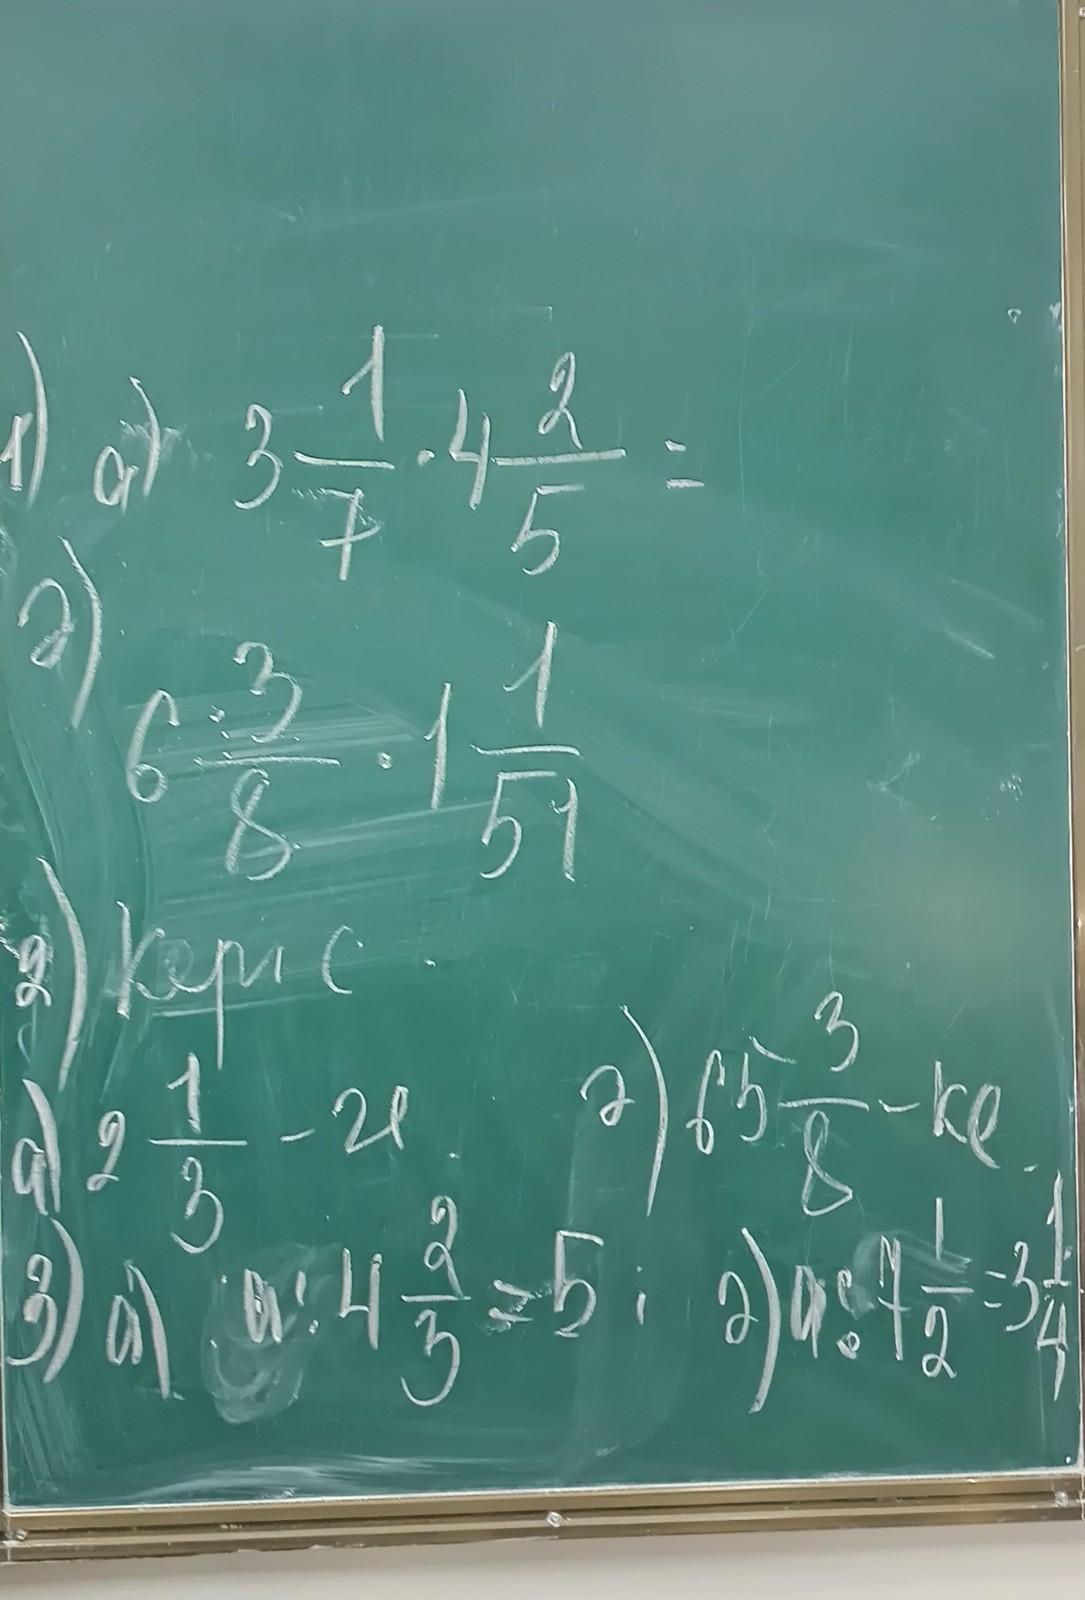 1) a) 3 1/7 · 4 2/5 =
ә)
6 3/8 · 1 1/51
2) Кері с
a) 2 1/3 - ге ә) 65 3/8 - ке
3) a) a : 4 2/3 = 5 ; ә) a : 7 1/2 = 3 1/4